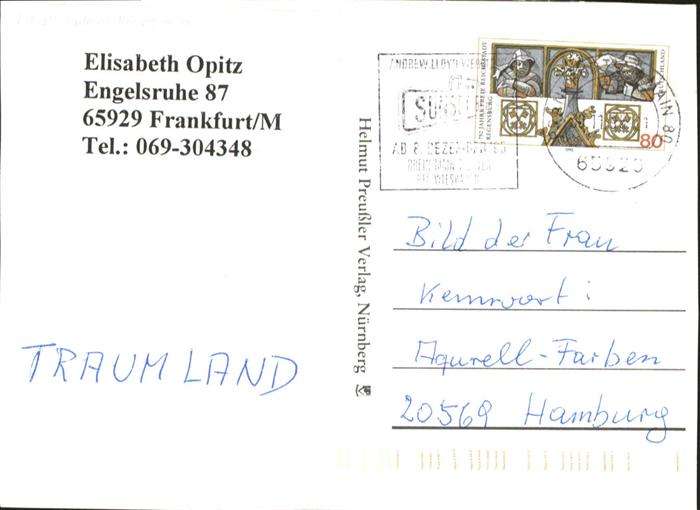 Elisabeth Opitz
Engelsruhe 87
65929 Frankfurt/M
Tel.: 069-304348
TRAUMLAND
Helmut Preußler Verlag, Nürnberg
750 JAHRE FREIE REICHSSTADT
REGENSBURG
DEUTSCHLAND
80
ANDREW LLOYD
AB 8. DEZEMBER
65929
Bild der Frau
Kennwort:
Aqurell-Farben
20569 Hamburg